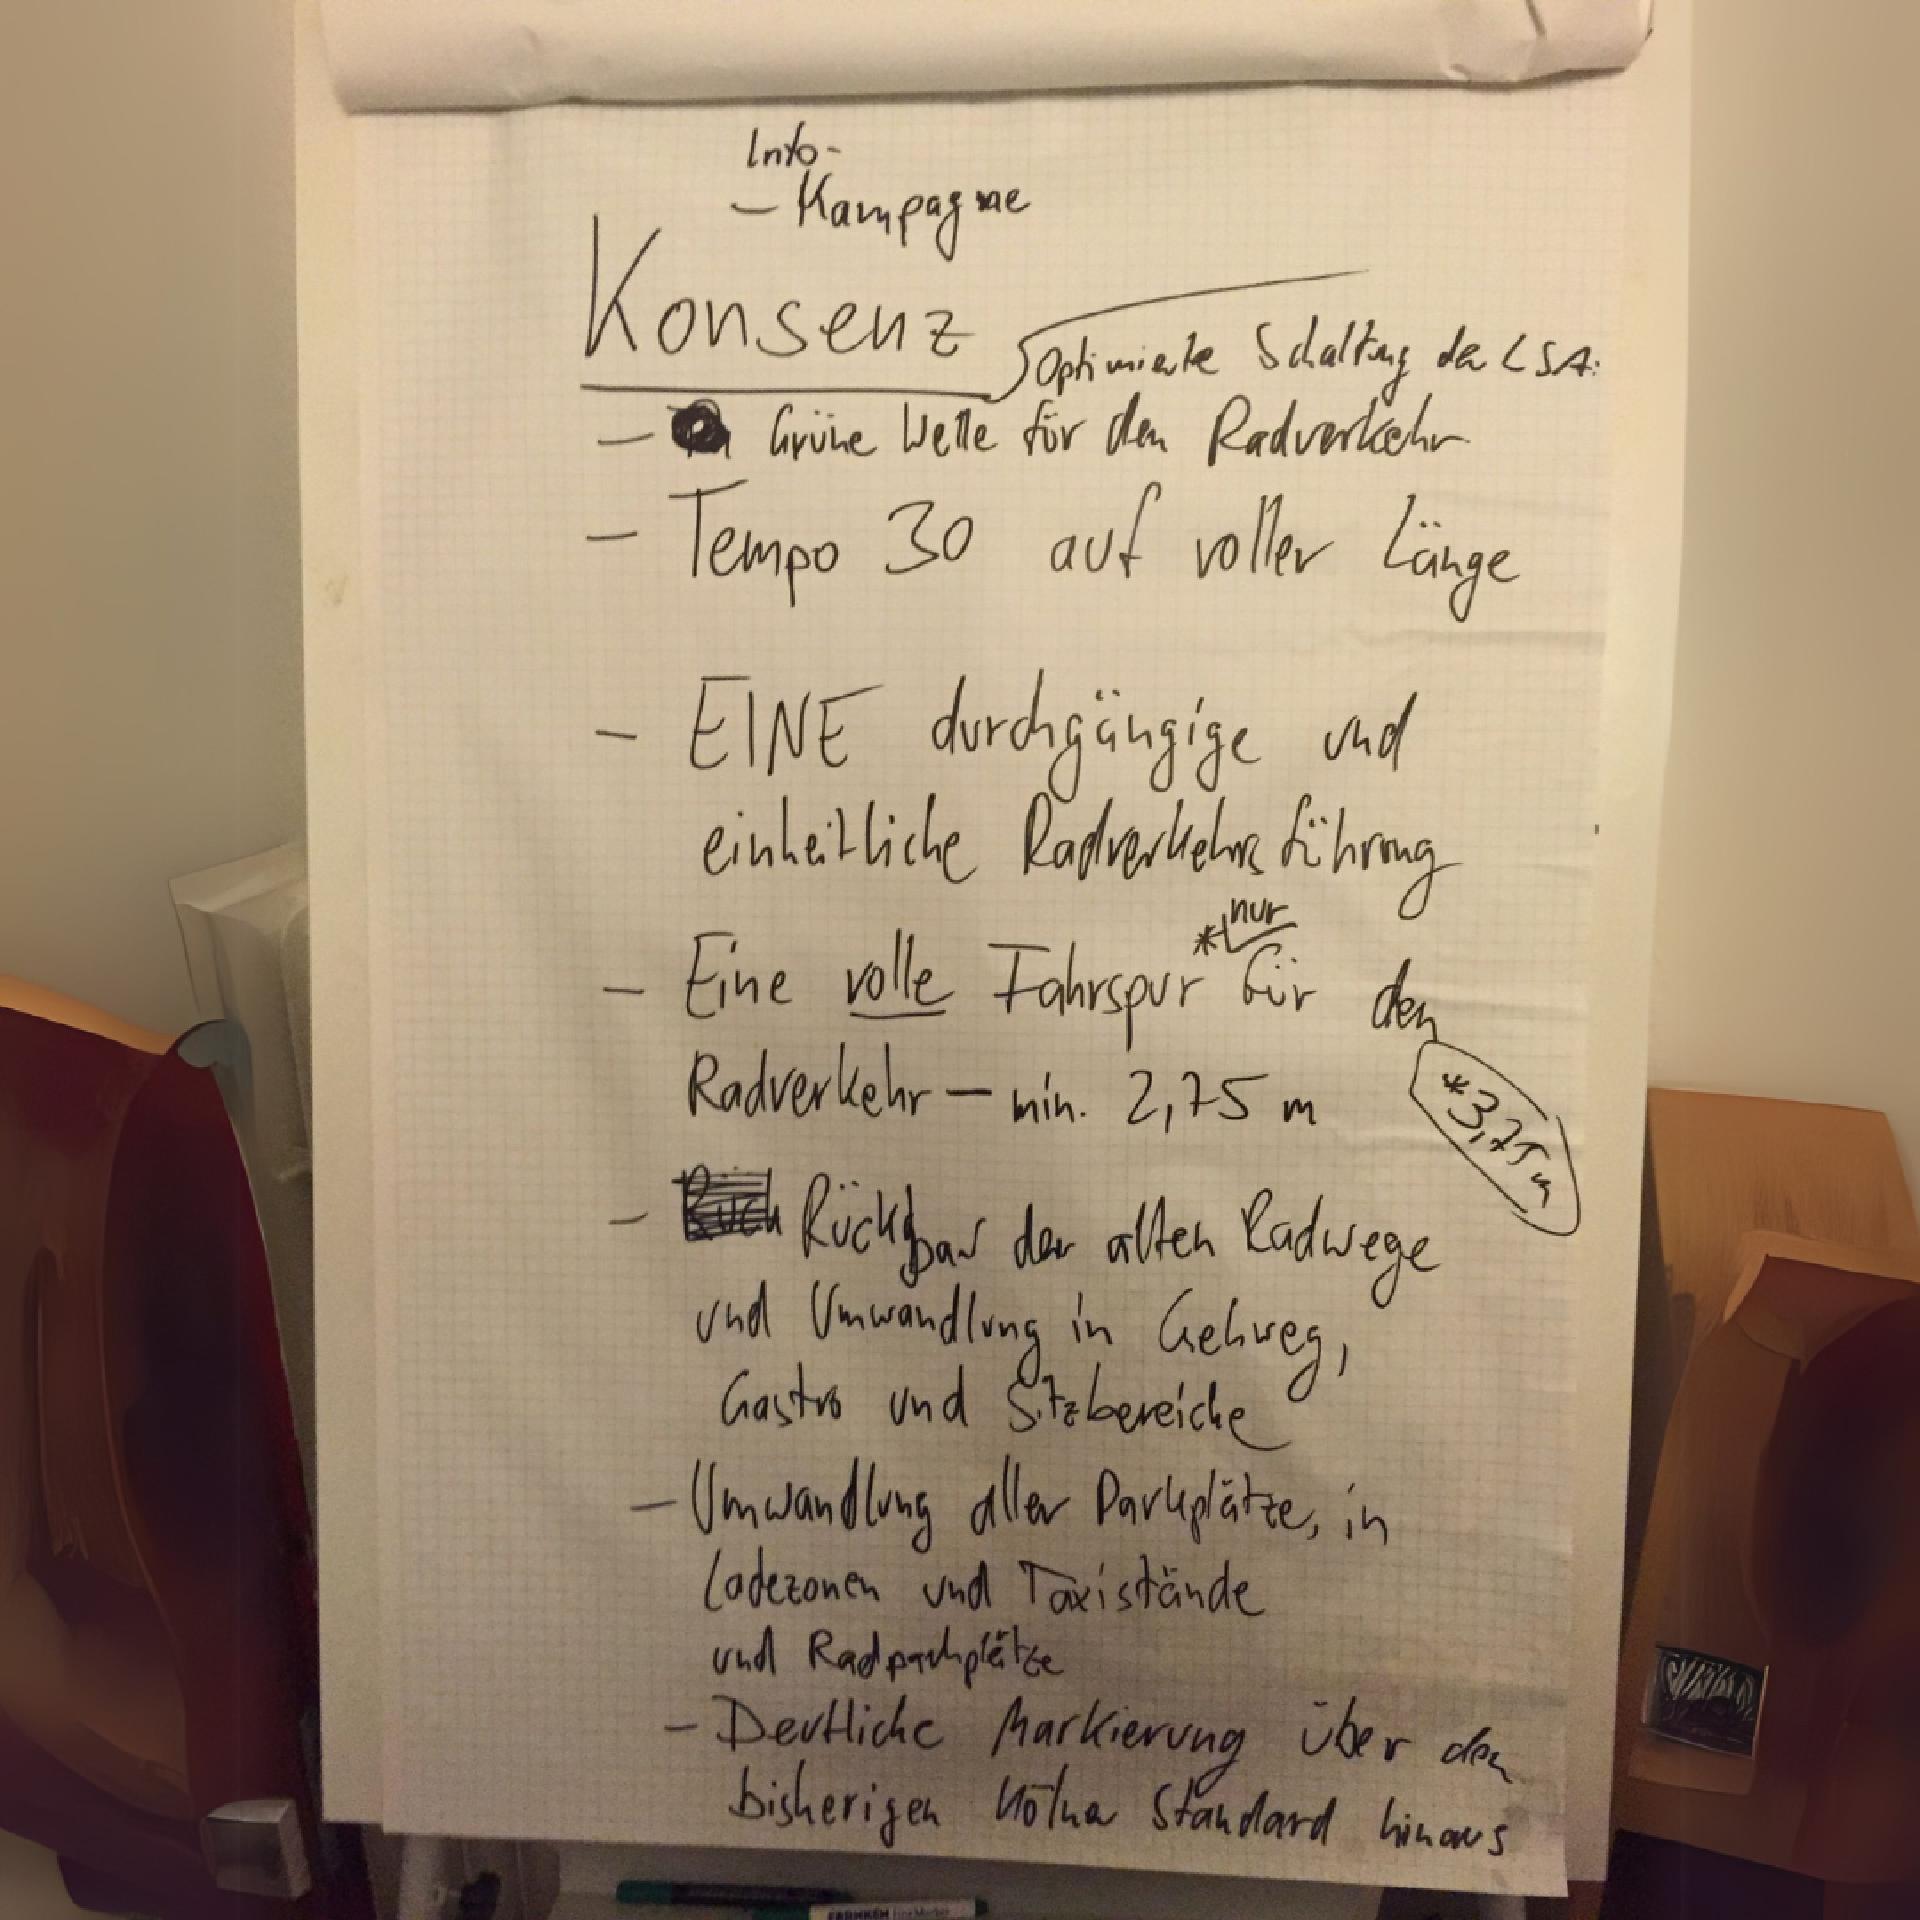 Info-
– Kampagne
Konsenz
Optimierte Schaltung der LSA:
– Grüne Welle für den Radverkehr
– Tempo 30 auf voller Länge
– EINE durchgängige und
einheitliche Radverkehrsführung
nur
– Eine volle Fahrspur * für den
Radverkehr – min. 2,75 m
*3,75 m
– Rückbau der alten Radwege
und Umwandlung in Gehweg,
Gastro und Sitzbereiche
– Umwandlung aller Parkplätze, in
Ladezonen und Taxistände
und Radparkplätze
– Deutliche Markierung über den
bisherigen Kölner Standard hinaus